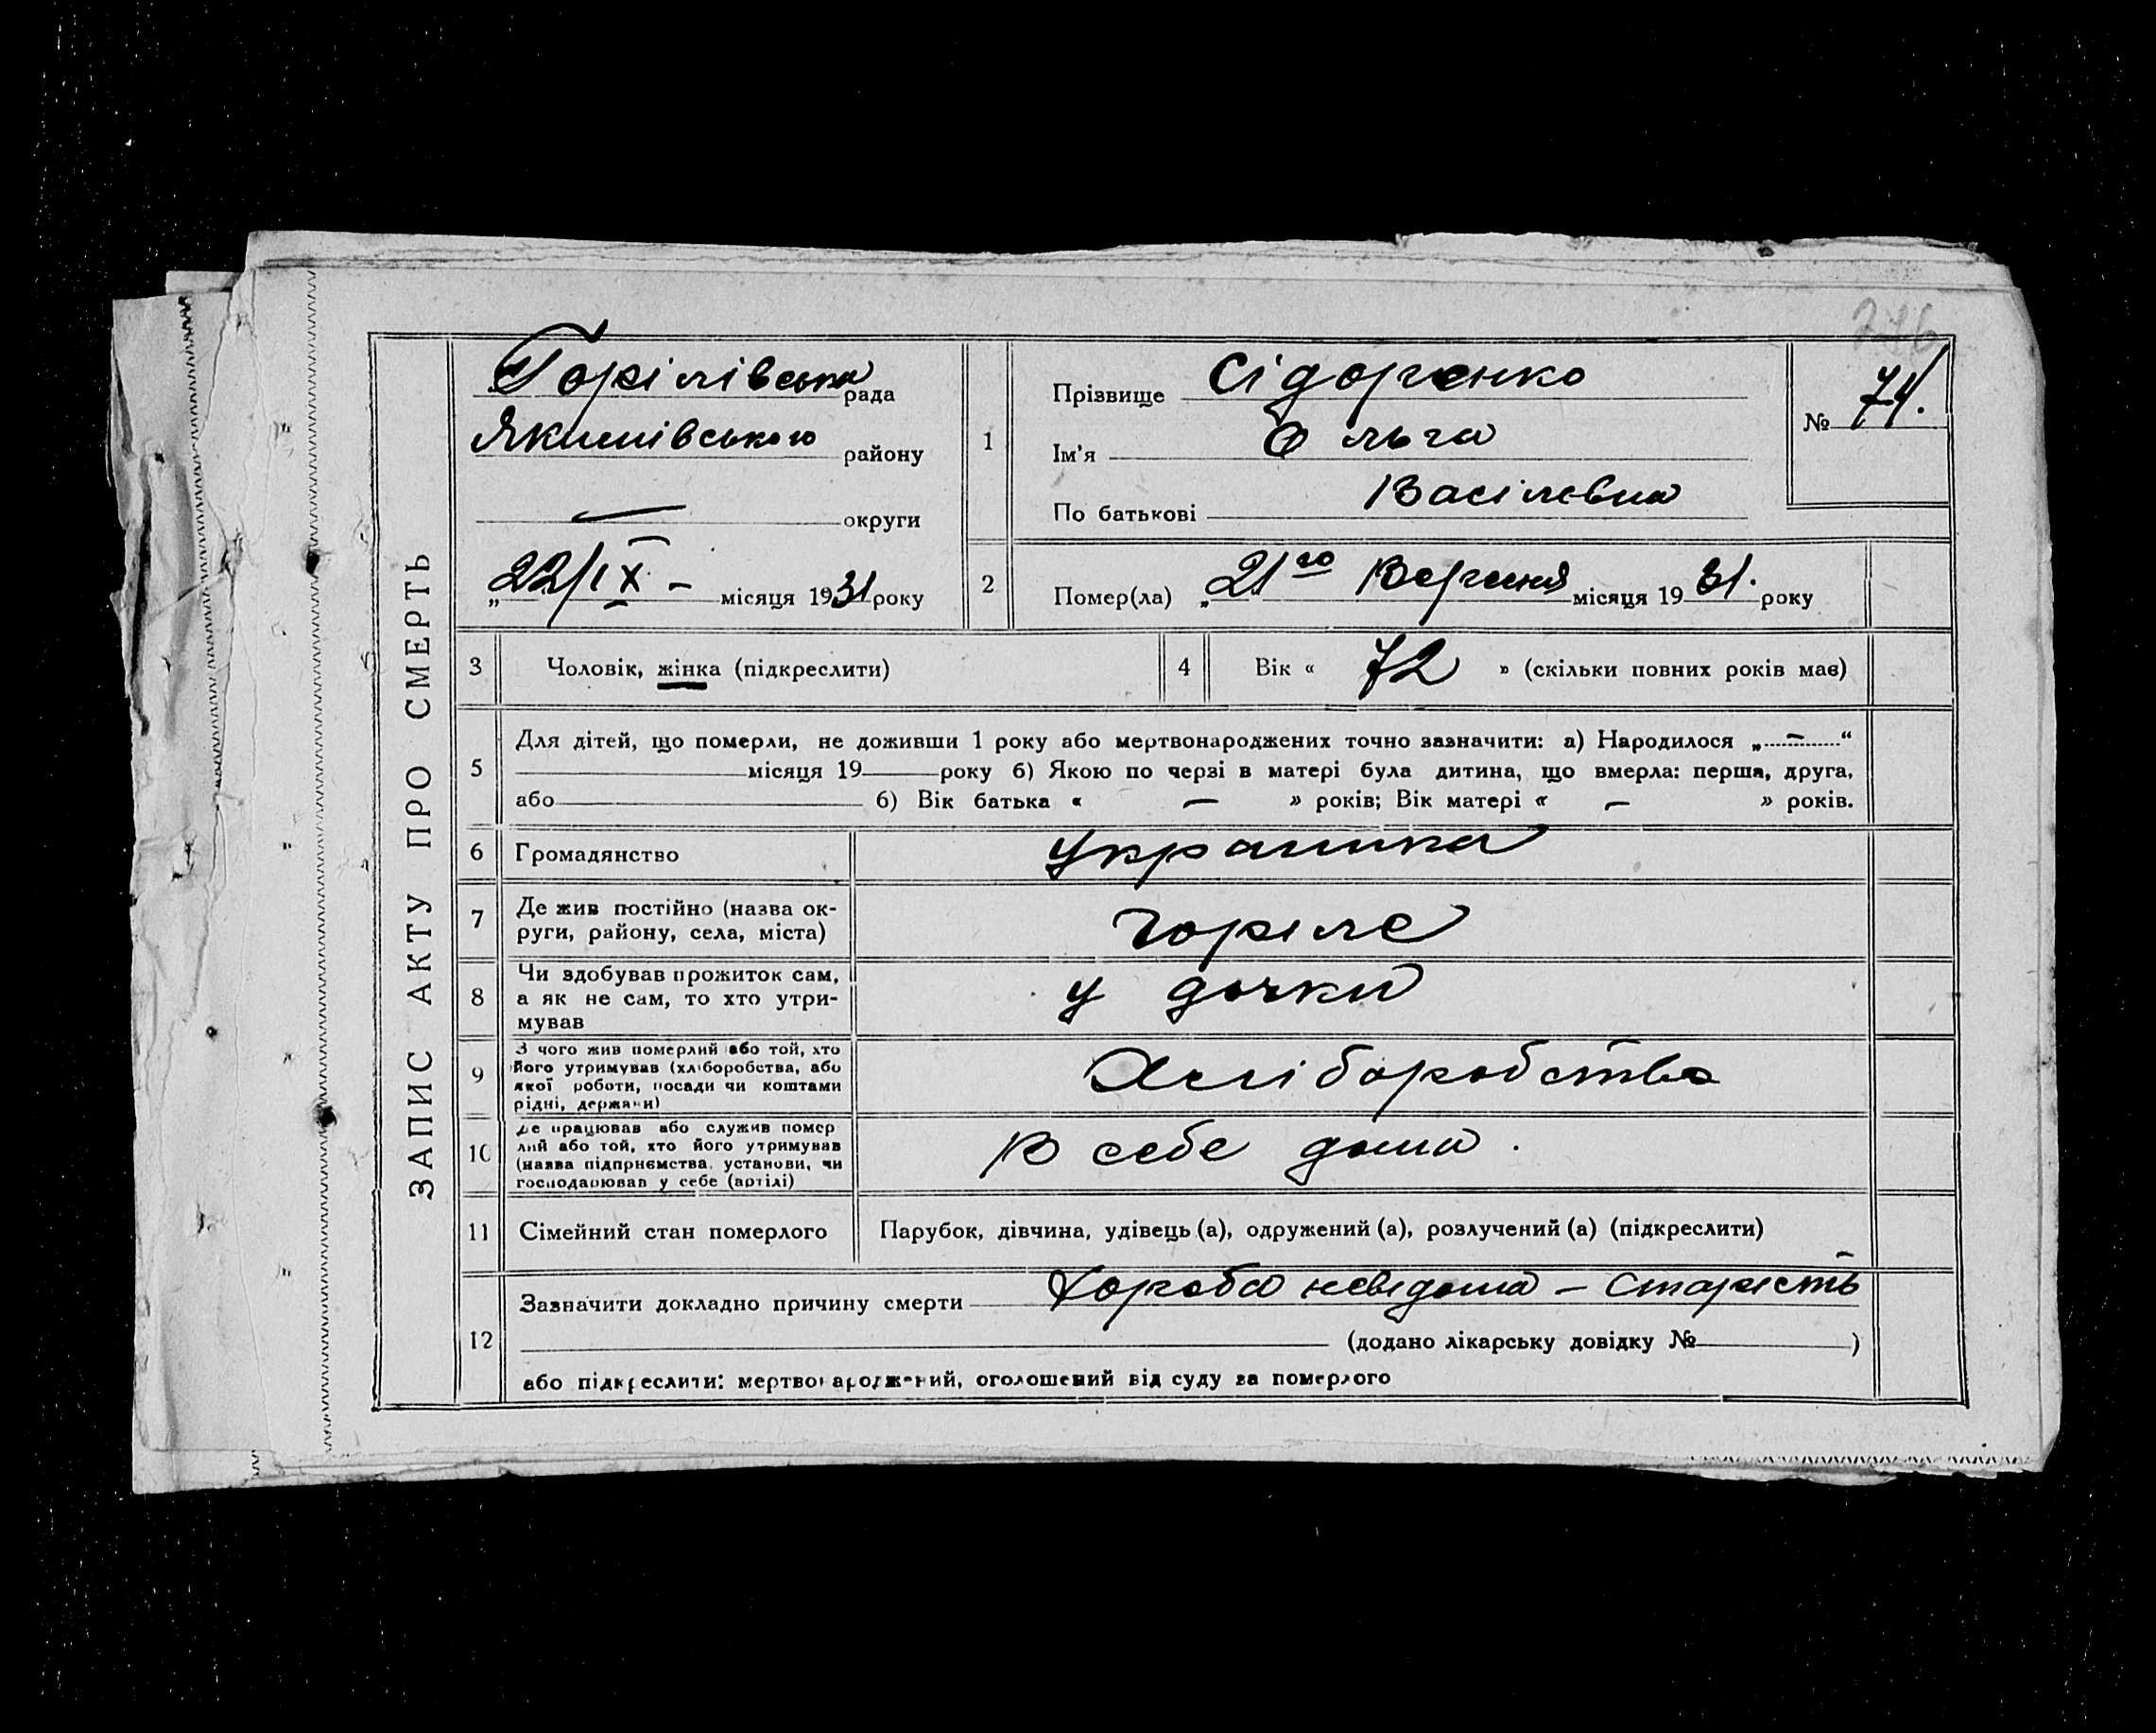 ЗАПИС АКТУ ПРО СМЕРТЬ
Горілівська рада
Якимівського району
— округи
„22/IX – місяця 1931 року
1
Прізвище Сідоренко
Ім'я Ольга
По батькові Васілевна
№ 74.
2
Помер(ла) „21го Вересня місяця 1931. року
3 Чоловік, жінка (підкреслити)
4 Вік « 72 » (скільки повних років має)
5
Для дітей, що померли, не доживши 1 року або мертвонароджених точно зазначити: а) Народилося „ — “
місяця 19 року б) Якою по черзі в матері була дитина, що вмерла: перша, друга,
або б) Вік батька « — » років; Вік матері « — » років.
6 Громадянство Украинка
7
Де жив постійно (назва ок-
руги, району, села, міста)
Горіле
8
Чи здобував прожиток сам,
а як не сам, то хто утри-
мував
у дочки
9
З чого жив померлий або той, хто
його утримував (хліборобства, або
якої роботи, посади чи коштами
рідні, держави)
Хліборобство
10
Де працював або служив помер
лий або той, хто його утримував
(назва підприємства, установи, чи
господарював у себе (артілі)
В себе дома.
11 Сімейний стан померлого Парубок, дівчина, удівець (а), одружений (а), розлучений (а) (підкреслити)
12
Зазначити докладно причину смерти Хороба невідома – старість
(додано лікарську довідку № )
або підкреслити: мертвонароджений, оголошений від суду за померлого